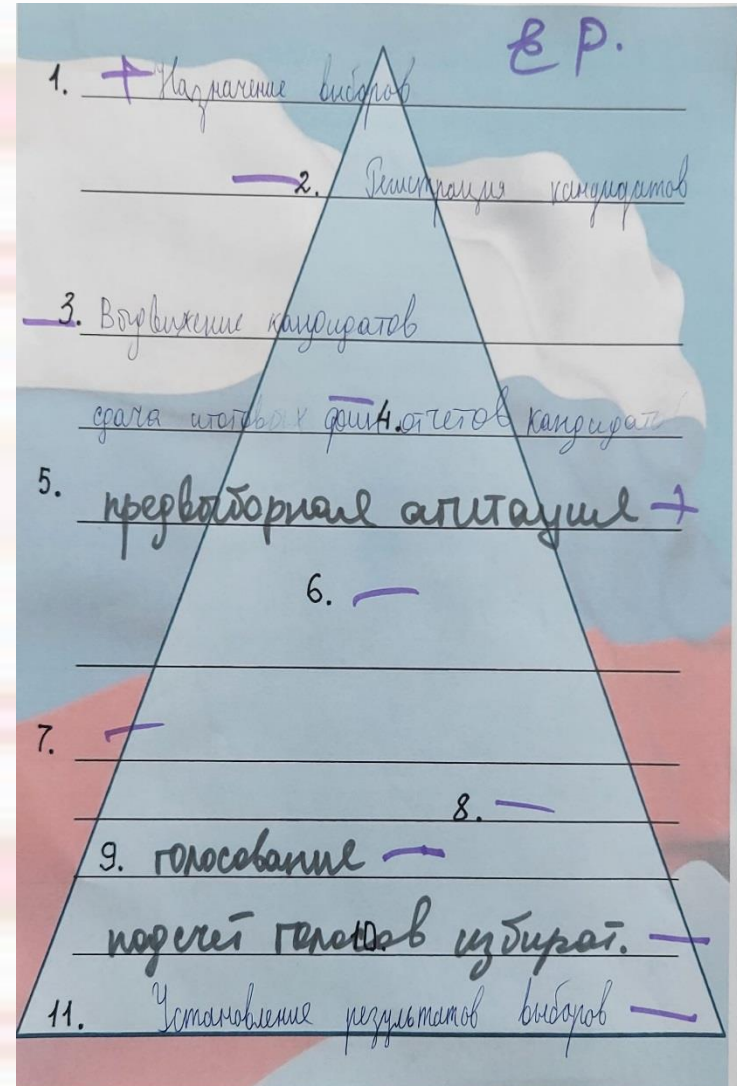 Е Р.
1. + Назначение выборов
— 2. Регистрация кандидатов
— 3. Выдвижение кандидатов
сдача итоговых фин 4. отчетов кандидат
5. предвыборная агитация +
6. —
7. —
8. —
9. голосование —
подсчет голосов 10. избират. —
11. Установление результатов выборов —